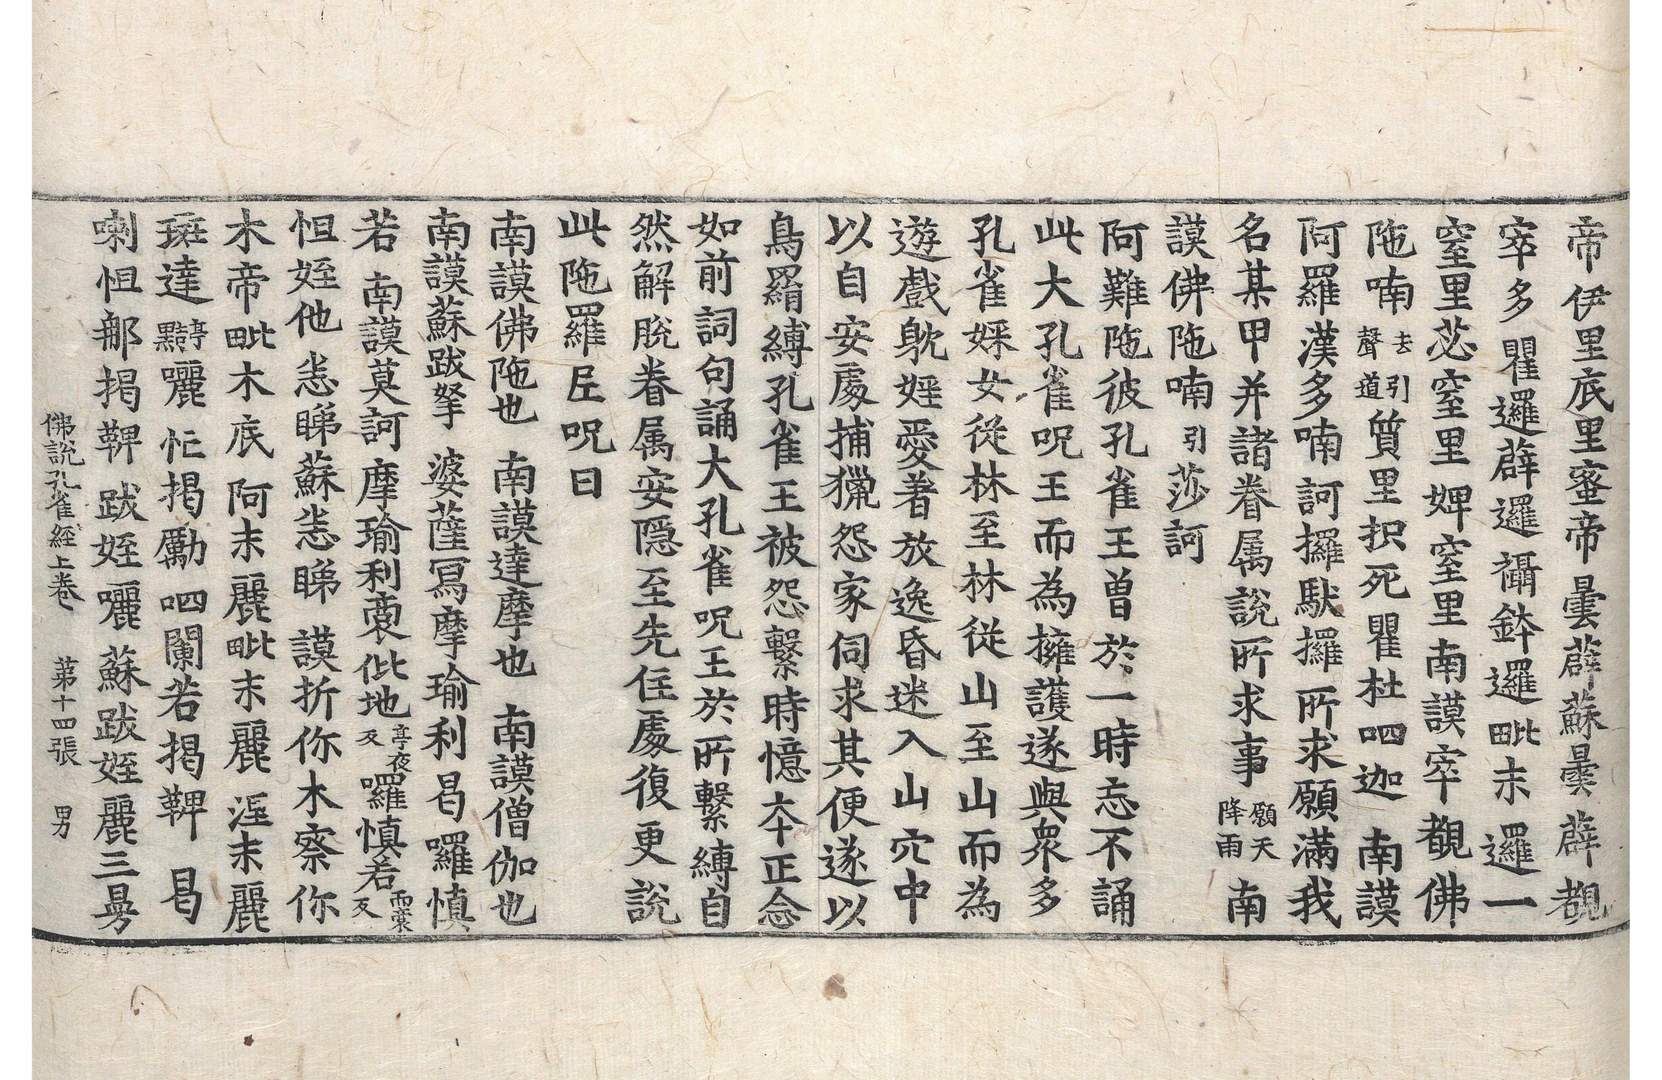 帝伊里底里蜜帝曇薜蘇曇薜覩
窣多瞿邏薜邏襵鉢邏毗末邏一
窒里苾窒里婢窒里南謨窣覩佛
陁喃去聲引道質里抧死瞿杜呬迦南謨
阿羅漢多喃訶攞馱攞所求願滿我
名某甲并諸眷属說所求事願天降雨南
謨佛陁喃引莎訶
阿難陁彼孔雀王曽於一時忘不誦
此大孔雀呪王而為擁護遂與衆多
孔雀婇女従林至林従山至山而為
遊戲躭婬愛著放逸昏迷入山穴中
以自安處捕獵怨家伺求其便遂以
鳥羂縛孔雀王被怨繫時憶本正念
如前詞句誦大孔雀呪王於所繫縛自
然解脫眷属安隱至先住處復更說
此陁羅尼呪曰
南謨佛陁也南謨達摩也南謨僧伽也
南謨蘇跋拏婆薩寫摩瑜利曷囉慎
若南謨莫訶摩瑜利裔佌地亭夜反囉慎若而裔反
怛姪他恙睇蘇恙睇謨折你木察你
木帝毗木底阿末麗毗末麗涅末麗
斑達亭黠囉忙揭勵呬闌若揭鞞曷
喇怛那揭鞞跋姪囉蘇跋姪麗三曼
佛說孔雀經上卷 第十四張 男